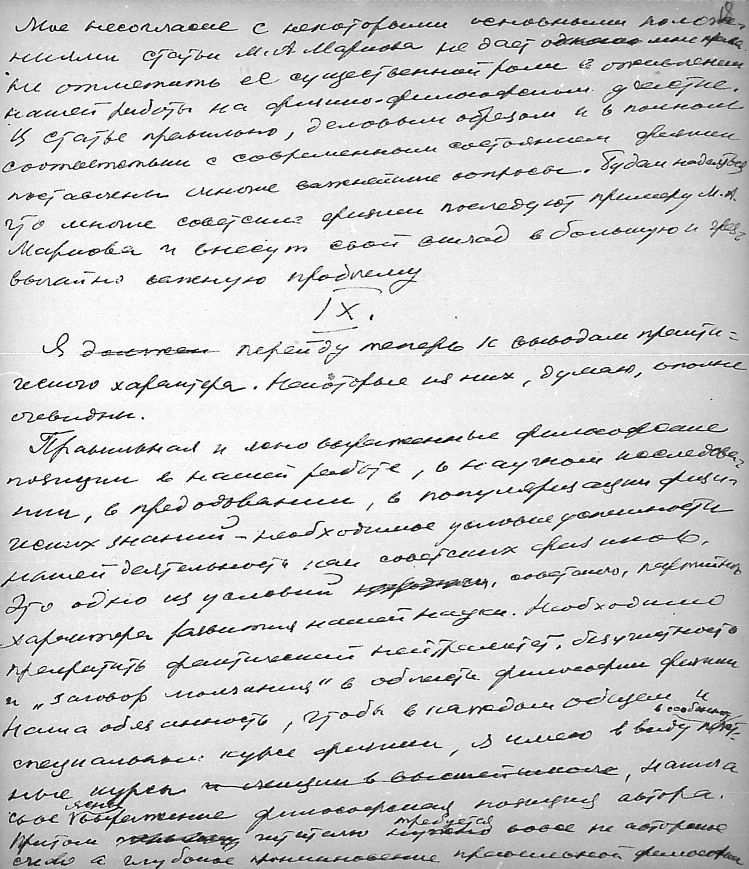 18
Мое несогласие с некоторыми основными положе-
ниями статьи М.А Маркова не дает однако мне права
не отметить ее существенной роли в оживлении
нашей работы на физико-философском участке.
В статье правильно, деловым образом и в полном
соответствии с современным состоянием физики
поставлены многие важнейшие вопросы. Будем надеяться
что многие советские физики последуют примеру М.А.
Маркова и внесут свой вклад в большую и чрез-
вычайно важную проблему
IX.
Я должен перейду теперь к выводам практи-
ческого характера. Некоторые из них, думаю, вполне
очевидны.
Правильная и ясно выраженные философские
позиции в нашей работе, в научном исследова-
нии, в преподавании, в популяризации физи-
ческих знаний – необходимое условие успешности
нашей деятельности как советских физиков.
Это одно из условий советского, партийного
характера развития нашей науки. Необходимо
прекратить фактический нейтралитет, безучастность
и „заговор молчания" в области философии физики
Наша обязанность, чтобы в каждом общем и
специальном курсе физики, я имею в виду в особенности печат-
ные курсы и лекции в высшей школе, нашла
свое ясное выражение философская позиция автора.
Притом читателю нужно требуется вовсе не авторское
слово а глубокое проникновение правильной философии